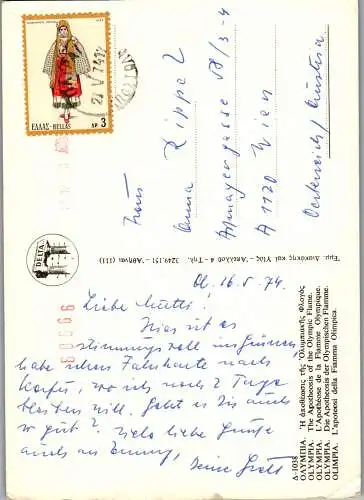 ΕΛΛΑΣ-HELLAS ΔΡ 3
Δ-1038
ΟΛΥΜΠΙΑ. Ἡ ἀποθέωσις τῆς Ὀλυμπιακῆς Φλογός
OLYMPIA. The Apotheosis of the Olympic Flame.
OLYMPIE. L'Apothéose de la Flamme Olympique.
OLYMPIA. Die Apotheosis der Olympischen Flamme.
OLIMPIA. L'apoteosi della Fiamma Olimpica.
DELTA
Ἐμμ. Διακάκης καὶ Υἱός - Ἀπελλοῦ 4 - Τηλ. 3249.151 - ΑΘΗΝΑΙ (111)
Frau
Anna Rippel
A 1170 Wien
Oesterreich / Austria
Ol. 16.5.74.
Liebe Mutti!
Hier ist es
stimmungsvoll im Grünen
habe schon Fahrkarte nach
Korfu, wo ich noch 2 Tage
bleiben will. Geht es Dir auch
so gut? Viele liebe Grüße
auch an
Deine Gretl